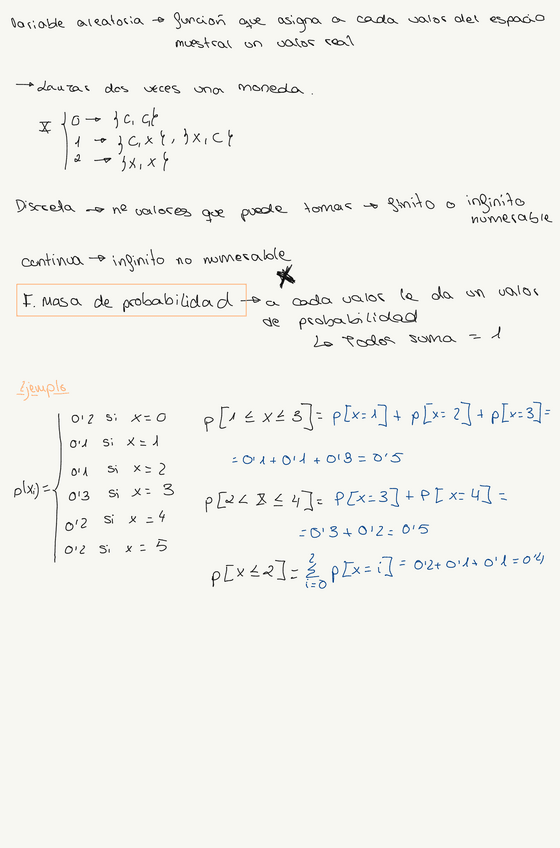 Variable aleatoria → función que asigna a cada valor del espacio
muestral un valor real
→ Lanzar dos veces una moneda.
X { 0 → {C, C}
1 → {C, X}, {X, C}
2 → {X, X}
Discreta → nº valores que puede tomar → finito o infinito
numerable
continua → infinito no numerable
F. Masa de probabilidad → a cada valor le da un valor
de probabilidad
↳ Todos suma = 1
Ejemplo
p(xi) = { 0'2 si x = 0
0'1 si x = 1
0'1 si x = 2
0'3 si x = 3
0'2 si x = 4
0'2 si x = 5
p[1 ≤ x ≤ 3] = p[x=1] + p[x=2] + p[x=3] =
= 0'1 + 0'1 + 0'3 = 0'5
p[2 < X ≤ 4] = p[x=3] + p[x=4] =
= 0'3 + 0'2 = 0'5
p[x ≤ 2] = ∑ i=0 2 p[x=i] = 0'2 + 0'1 + 0'1 = 0'4